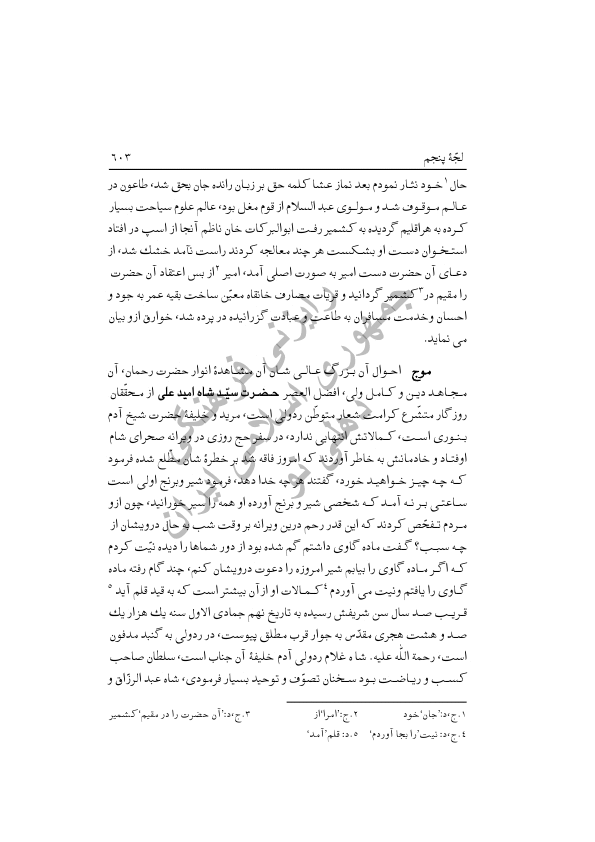 لجّهٔ پنجم ۶۰۳
حال۱ خود نثار نمودم بعد نماز عشا کلمه حق بر زبان رانده جان بحق شد، طاعون در
عالم موقوف شد و مولوی عبد السلام از قوم مغل بود، عالم علوم سیاحت بسیار
کرده به هراقلیم گردیده به کشمیر رفت ابوالبرکات خان ناظم آنجا از اسپ در افتاد
استخوان دست او بشکست هر چند معالجه کردند راست نآمد خشك شد، از
دعای آن حضرت دست امیر به صورت اصلی آمد، امیر۲ از بس اعتقاد آن حضرت
را مقیم در۳ کشمیر گردانید و قریات مصارف خانقاه معیّن ساخت بقیه عمر به جود و
احسان وخدمت مسافران به طاعت و عبادت گزرانیده در پرده شد، خوارق ازو بیان
می نماید.
موج احوال آن بزرگ عالی شان آن مشاهدهٔ انوار حضرت رحمان، آن
مجاهد دین و کامل ولی، افضل العصر حضرت سیّد شاه امید علی از محقّقان
روزگار متشّرع کرامت شعار متوطّن ردولی است، مرید و خلیفهٔ حضرت شیخ آدم
بنوری است، کمالاتش انتهایی ندارد، در سفر حج روزی در ویرانه صحرای شام
اوفتاد و خادمانش به خاطر آوردند که امروز فاقه شد بر خطرهٔ شان مطّلع شده فرمود
که چه چیز خواهید خورد، گفتند هر چه خدا دهد، فرمود شیر وبرنج اولی است
ساعتی بر نه آمد که شخصی شیر و برنج آورده او همه را سیر خورانید، چون ازو
مردم تفحّص کردند که این قدر رحم درین ویرانه بر وقت شب به حال درویشان از
چه سبب؟ گفت ماده گاوی داشتم گم شده بود از دور شماها را دیده نیّت کردم
که اگر ماده گاوی را بیابم شیر امروزه را دعوت درویشان کنم، چند گام رفته ماده
گاوی را یافتم ونیت می آوردم۴ کمالات او ازآن بیشتر است که به قید قلم آید۵
قریب صد سال سن شریفش رسیده به تاریخ نهم جمادی الاول سنه یك هزار یك
صد و هشت هجری مقدّس به جوار قرب مطلق پیوست، در ردولی به گنبد مدفون
است، رحمة اللّٰه علیه. شاه غلام ردولی آدم خلیفهٔ آن جناب است، سلطان صاحب
کسب و ریاضت بود سخنان تصوّف و توحید بسیار فرمودی، شاه عبد الرزّاق و
۱.ج،د:'جان'خود ۲.ج:'امرا'از ۳.ج،د:'آن حضرت را در مقیم'کشمیر
۴.ج،د: نیت'را بجا آوردم' ۵.د: قلم'آمد'
رایزنی فرهنگی
جمهوری اسلامی ایران
دهلی نو